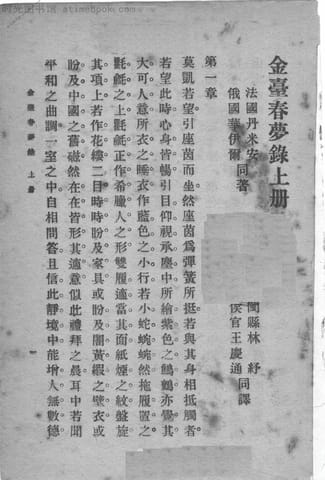 金臺春夢錄上册
法國丹米安
俄國華伊爾 同著
閩縣林 紓
侯官王慶通 同譯
第一章
莫凱若望引座茵而坐然座茵爲彈簧所挺若與其身相抵觸者
若望此時心身皆暢引目仰視承塵中所繪紫色之鸚鵡亦覺其
大可人意所衣之睡衣作藍色之小行若小蛇蜿蜒然拖履置之
氈毹之上氈毹正作希臘人之形雙履適當其面紙煙之紋盤旋
其項上若作花纓二目時時盼及家具或盼及閨黃緞之壁衣或
盼及中國之舊磁然在在皆形其適意似此禮拜之晨耳中若聞
平和之曲調一室之中自相問答且信此靜境中能增人無數德
金臺春夢錄 上册
一